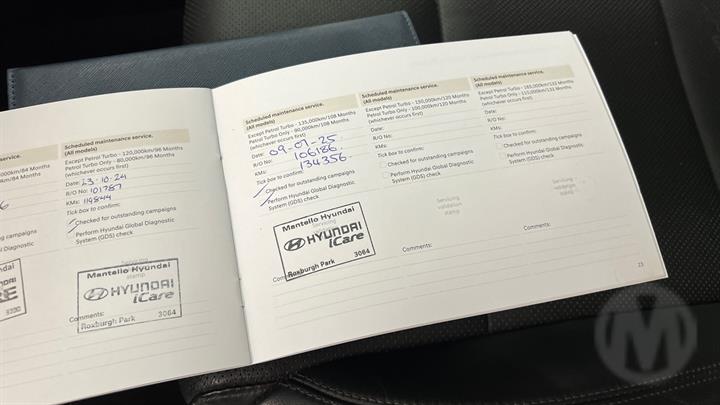 000km/84 Months
000km/84 Months
Diagnostic
3200
Scheduled maintenance service.
(All models)
Except Petrol Turbo - 120,000km/96 Months
Petrol Turbo Only - 80,000km/96 Months
(whichever occurs first)
Date: 23.10.24
R/O No: 101787
KMs: 119844
Tick box to confirm:
Checked for outstanding campaigns
Perform Hyundai Global Diagnostic
System (GDS) check
Mantello Hyundai
stamp
HYUNDAI
iCare
Comments:
Roxburgh Park 3064
Scheduled maintenance service.
(All models)
Except Petrol Turbo - 135,000km/108 Months
Petrol Turbo Only - 90,000km/108 Months
(whichever occurs first)
Date: 09-07-25
R/O No: 106186
KMs: 134356
Tick box to confirm:
Checked for outstanding campaigns
Perform Hyundai Global Diagnostic
System (GDS) check
Mantello Hyundai
HYUNDAI
iCare
Roxburgh Park 3064
Scheduled maintenance service.
(All models)
Except Petrol Turbo - 150,000km/120 Months
Petrol Turbo Only - 100,000km/120 Months
(whichever occurs first)
Date:
R/O No:
KMs:
Tick box to confirm:
Checked for outstanding campaigns
Perform Hyundai Global Diagnostic
System (GDS) check
Servicing
validation
stamp
Comments:
Scheduled maintenance service.
(All models)
Except Petrol Turbo - 165,000km/132 Months
Petrol Turbo Only - 110,000km/132 Months
(whichever occurs first)
Date:
R/O No:
KMs:
Tick box to confirm:
Checked for outstanding campaigns
Perform Hyundai Global Diagnostic
System (GDS) check
Servicing
validation
stamp
Comments:
23
M